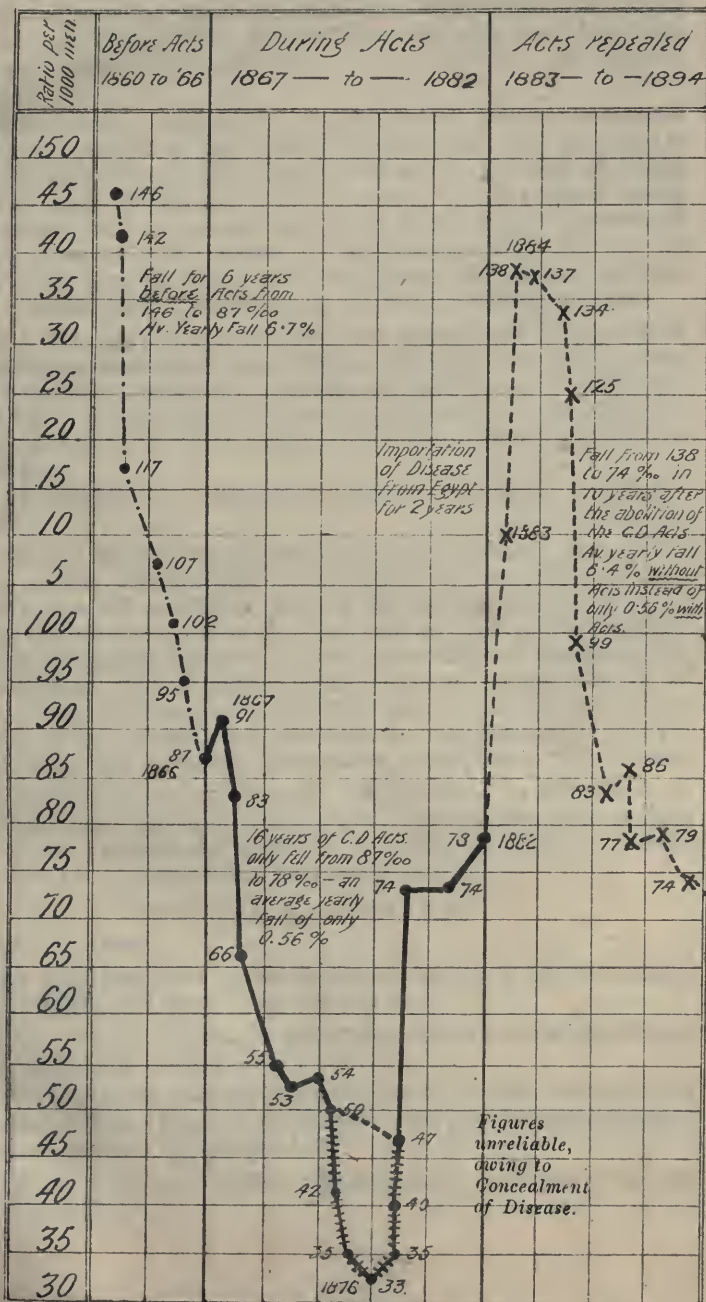 Ratio per
1000 men.
Before Acts
1860 to '66
During Acts
1867 — to — 1882
Acts repealed
1883 — to — 1894
150
45
40
35
30
25
20
15
10
5
100
95
90
85
80
75
70
65
60
55
50
45
40
35
30
146
142
Fall for 6 years
before Acts from
146 to 87 ‰
Av. Yearly Fall 6·7%
117
107
102
95
87
1866
1867
91
83
16 years of C.D Acts.
only fell from 87‰
to 78‰ – an
average yearly
Fall of only
0.56 %
66
55
53
54
50
42
35
1876
33.
35
40
47
74
74
73
1882
Importation
of Disease
from Egypt
for 2 years
1883
1884
138
137
134
125
Fall from 138
to 74 ‰ in
10 years after
the abolition of
the C.D Acts
Av yearly fall
6·4 % without
Acts instead of
only 0·56 % with
Acts.
99
83
86
77
79
74
Figures
unreliable,
owing to
Concealment
of Disease.